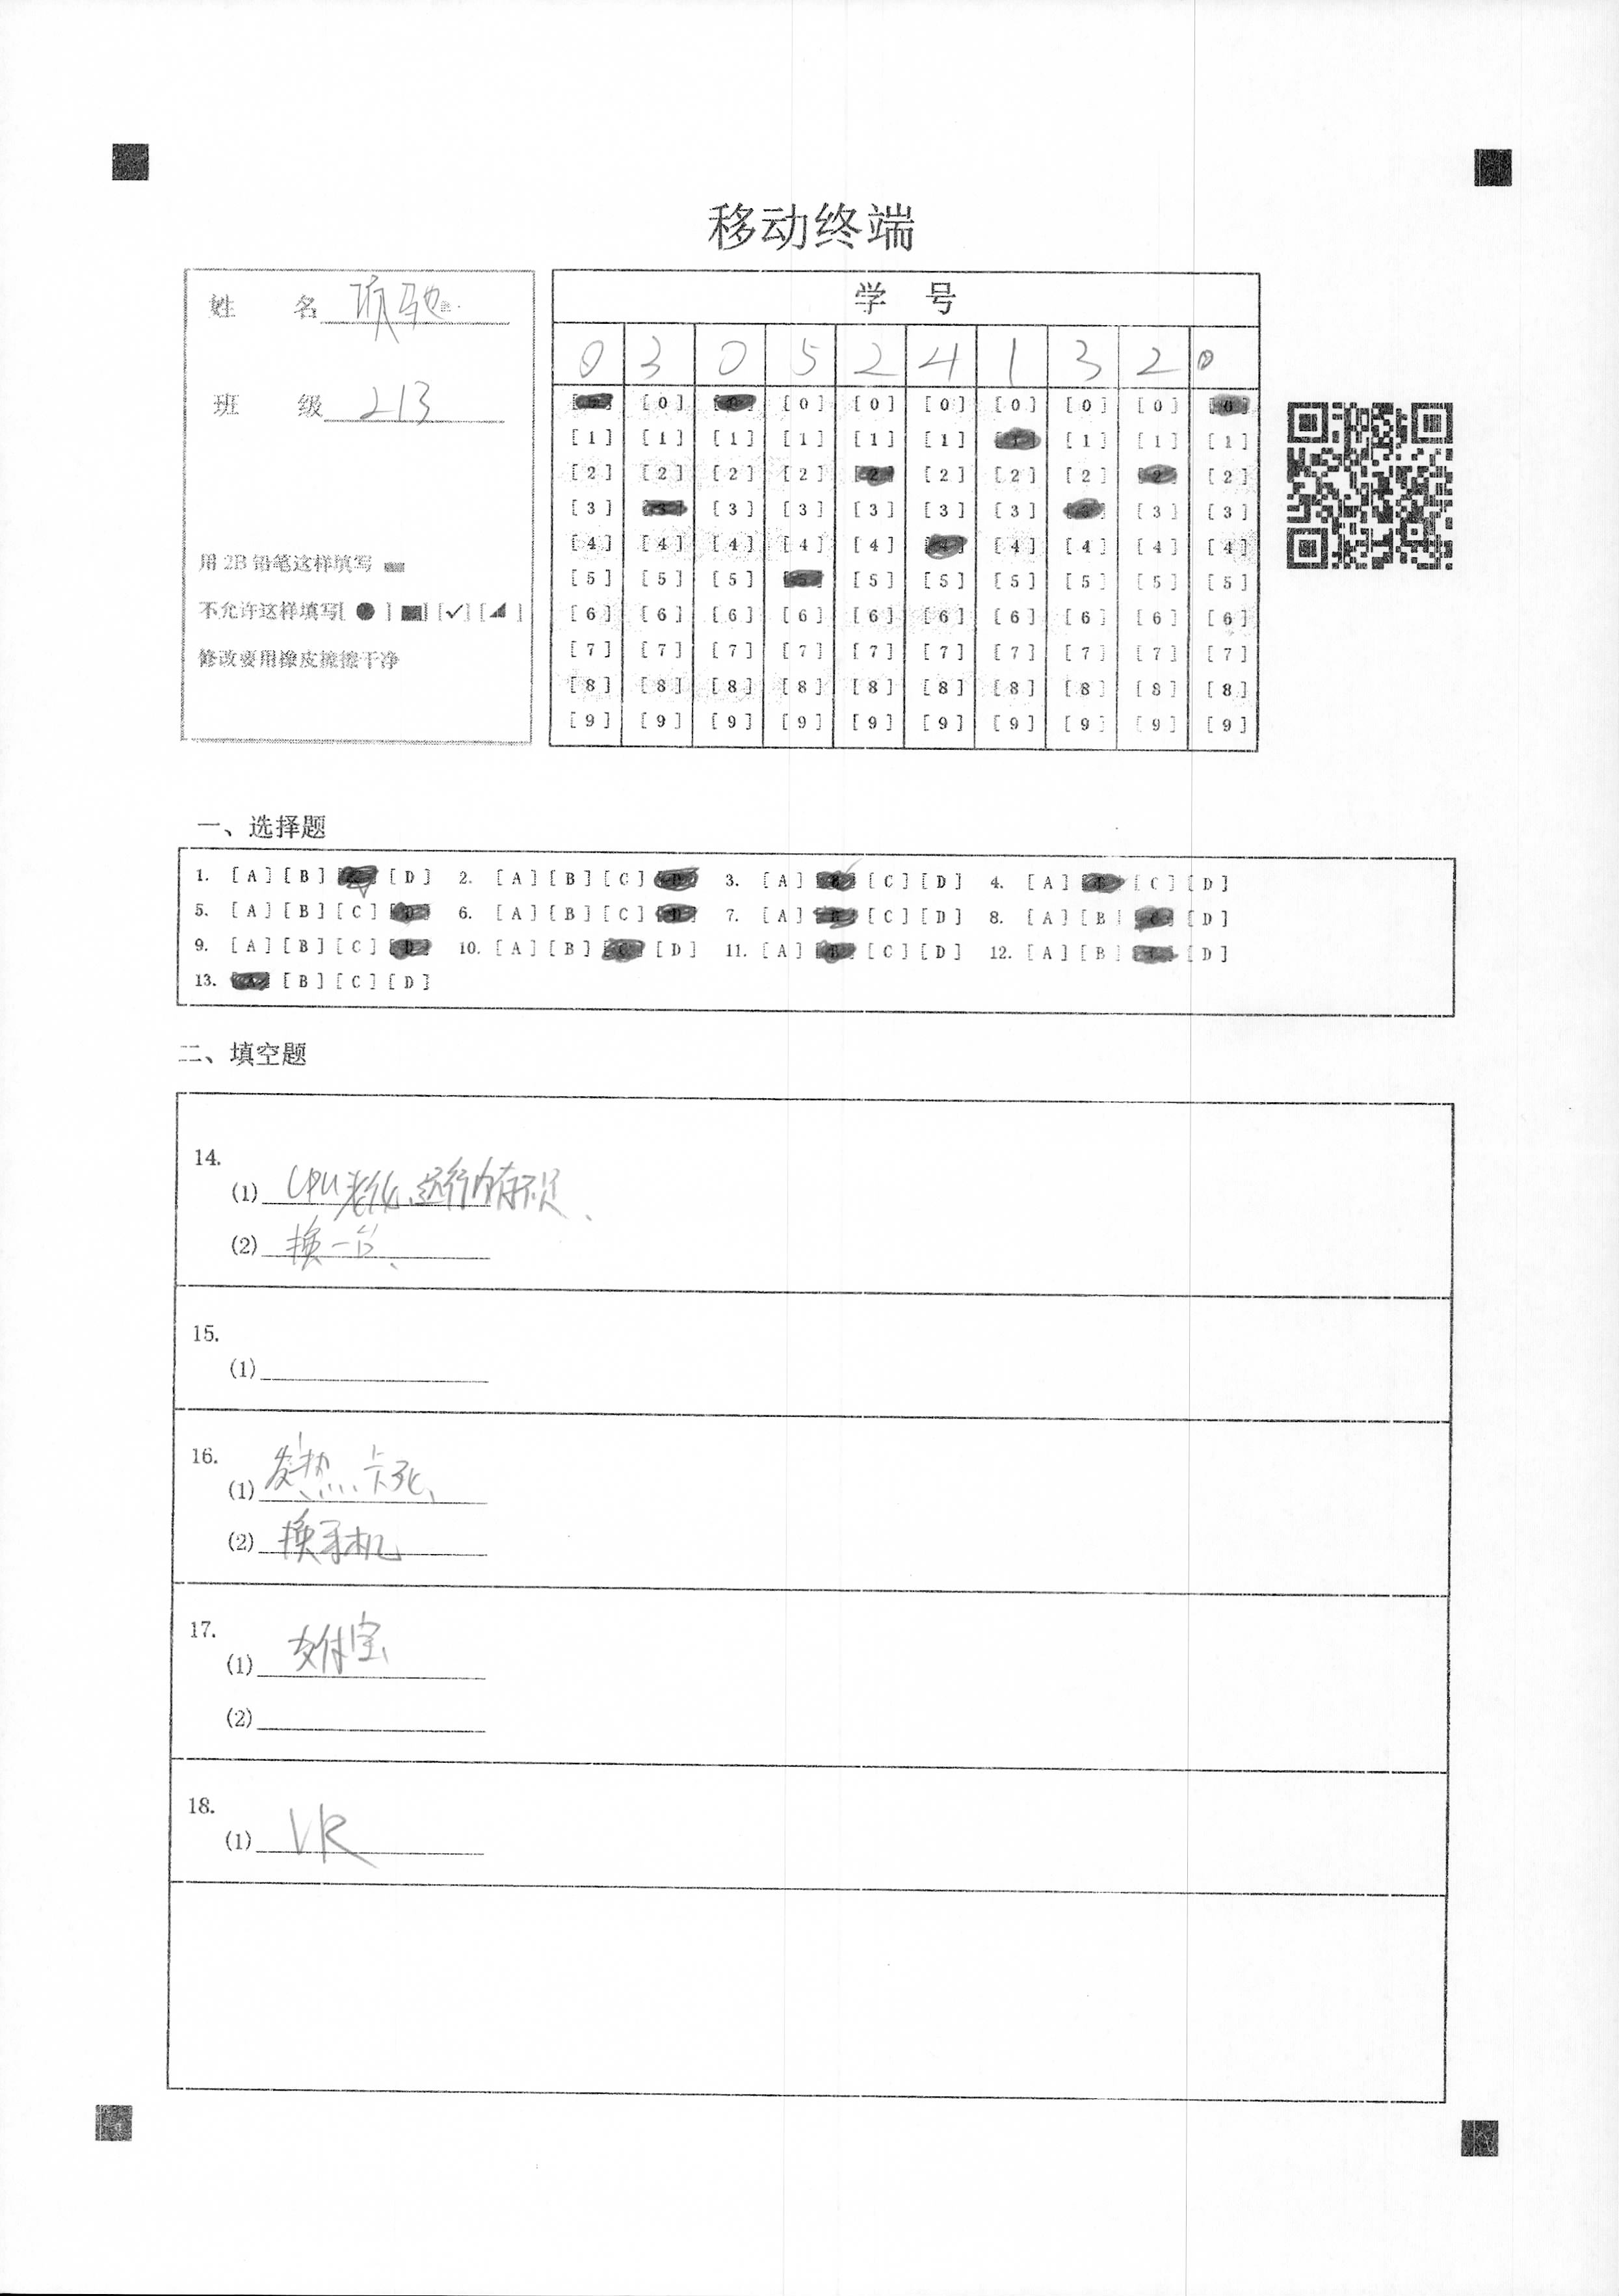 移动终端
姓 名 项驰
班 级 213
用 2B 铅笔这样填写
不允许这样填写[ ● ] [■] [✓] [◢ ]
修改要用橡皮擦擦干净
学 号
0 3 0 5 2 4 1 3 2 0
[0] [0] [0] [0] [0] [0] [0] [0]
[1] [1] [1] [1] [1] [1] [1] [1] [1] [1]
[2] [2] [2] [2] [2] [2] [2] [2] [2]
[3] [3] [3] [3] [3] [3] [3] [3]
[4] [4] [4] [4] [4] [4] [4] [4] [4] [4]
[5] [5] [5] [5] [5] [5] [5] [5] [5]
[6] [6] [6] [6] [6] [6] [6] [6] [6] [6]
[7] [7] [7] [7] [7] [7] [7] [7] [7] [7]
[8] [8] [8] [8] [8] [8] [8] [8] [8] [8]
[9] [9] [9] [9] [9] [9] [9] [9] [9] [9]
一、选择题
1. [A] [B] [D] 2. [A] [B] [C] 3. [A] [C] [D] 4. [A] [C] [D]
5. [A] [B] [C] 6. [A] [B] [C] 7. [A] [C] [D] 8. [A] [B] [D]
9. [A] [B] [C] 10. [A] [B] [D] 11. [A] [C] [D] 12. [A] [B] [D]
13. [B] [C] [D]
二、填空题
14.
(1) CPU老化、运行内存不足、
(2) 换一台、
15.
(1)
16.
(1) 发热、卡死、
(2) 换手机
17.
(1) 支付宝、
(2)
18.
(1) VR